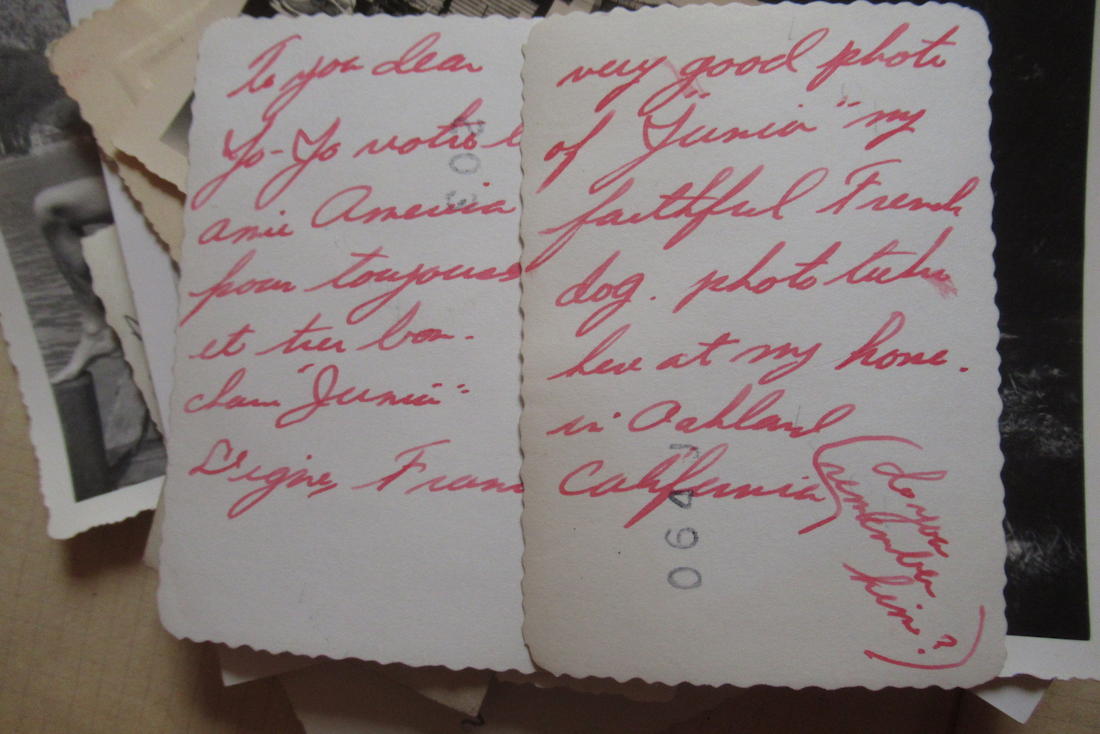 To you dear
Yo-Yo votre
amie America
pour toujours
et tres bon.
"Junia"
Digne, Franc
very good photo
of "Junia" my
faithful French
dog. photo taken
here at my home.
in Oakland
California
(do you
remember
him?)
064